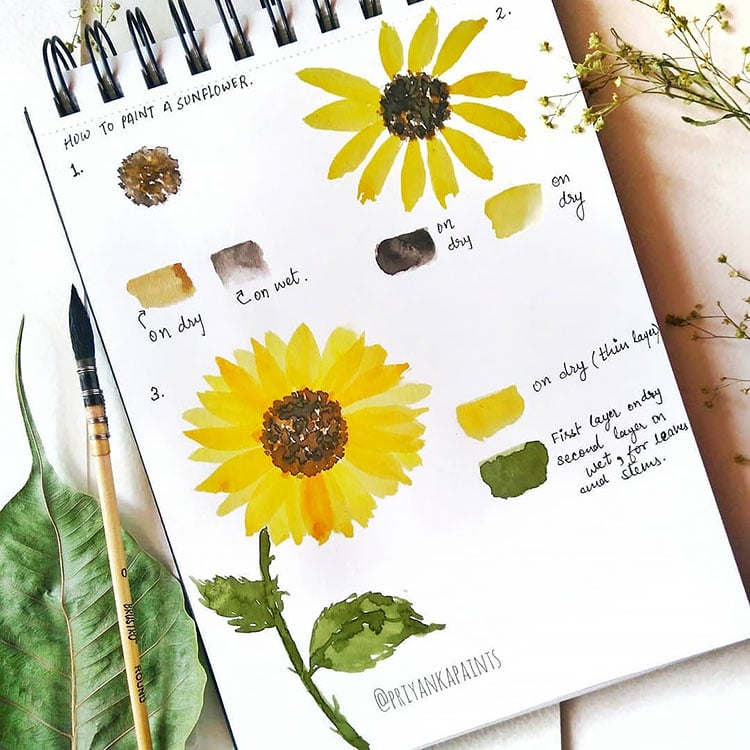 HOW TO PAINT A SUNFLOWER.
1.
2.
on dry
on wet.
on
dry
on
dry
3.
on dry (thin layer)
First layer on dry
second layer on
wet, for leaves
and stems.
@PRIYANKAPAINTS
0
BRUSTRO